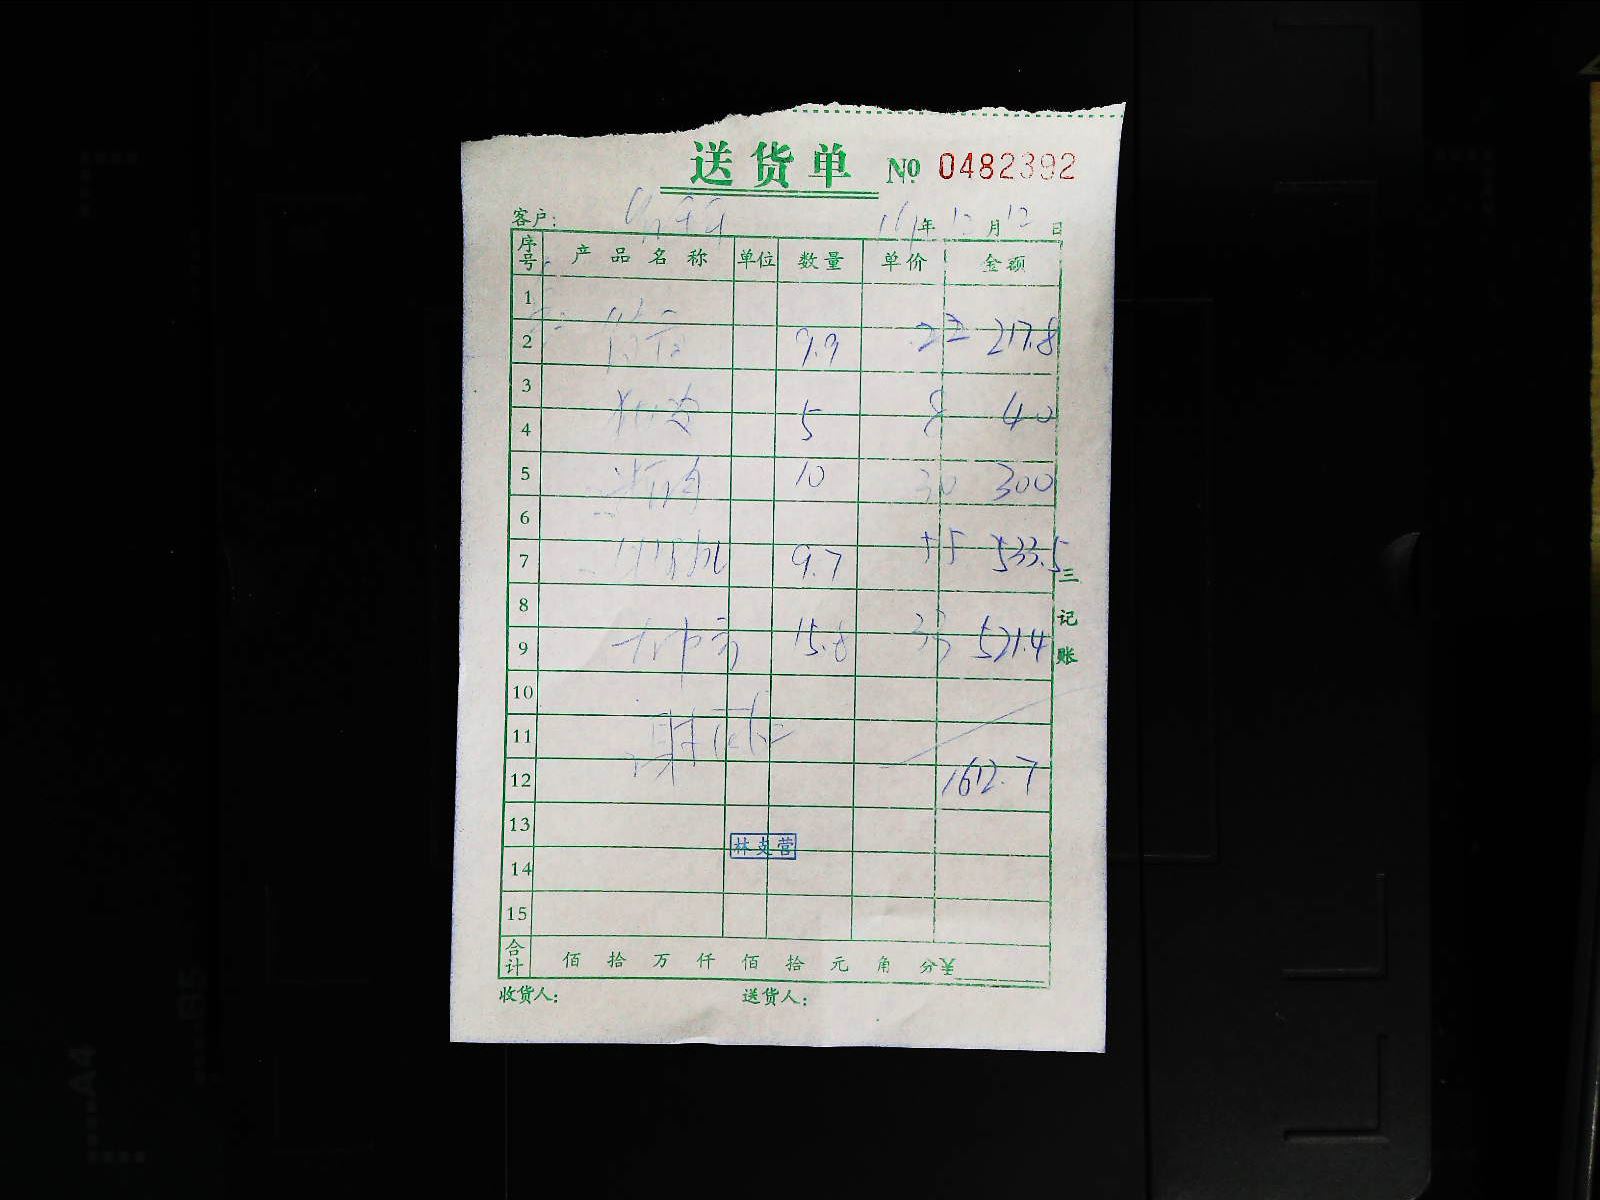 送货单 № 0482392
客户： 年 12 月 12 日
序号 产品名称 单位 数量 单价 金额
1
2 9.9 22 217.8
3
4 5 8 40
5 10 30 300
6
7 9.7 55 533.5
8
9 15.8 33 521.4
10
11
12 1612.7
13
林支营
14
15
合计 佰 拾 万 仟 佰 拾 元 角 分 ¥
收货人： 送货人：
三 记账